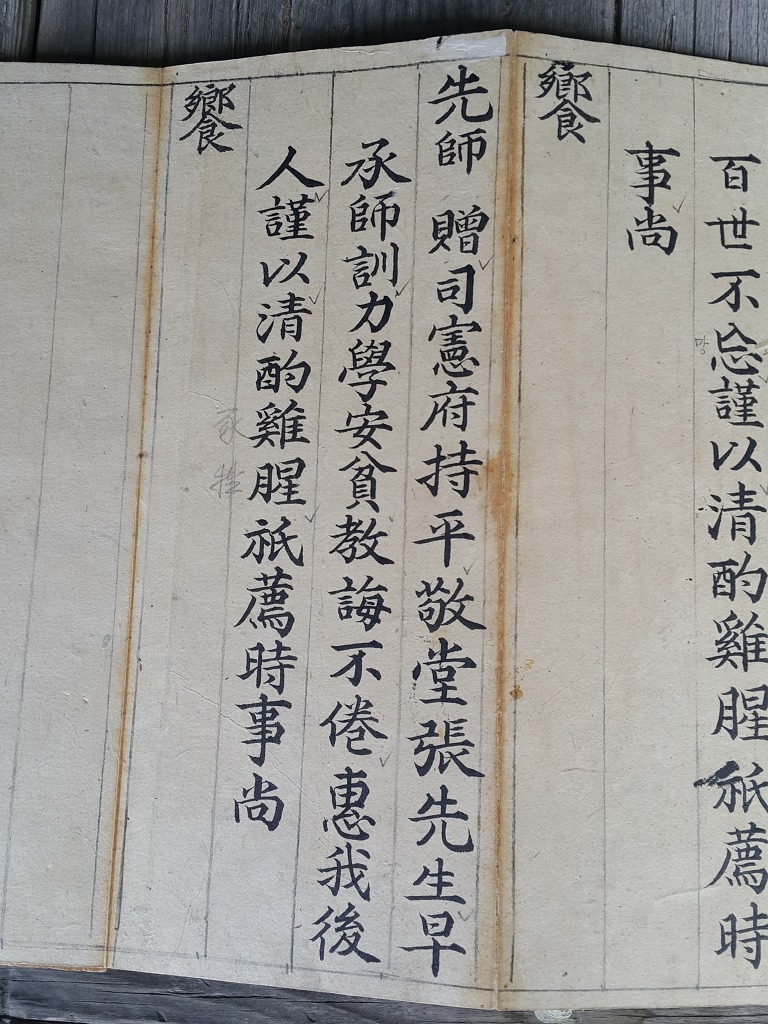 百世不忘謹以清酌雞腥祇薦時
망
事尚
饗
先師 贈司憲府持平敬堂張先生早
承師訓力學安貧教誨不倦惠我後
人謹以清酌雞腥祇薦時事尚
饗